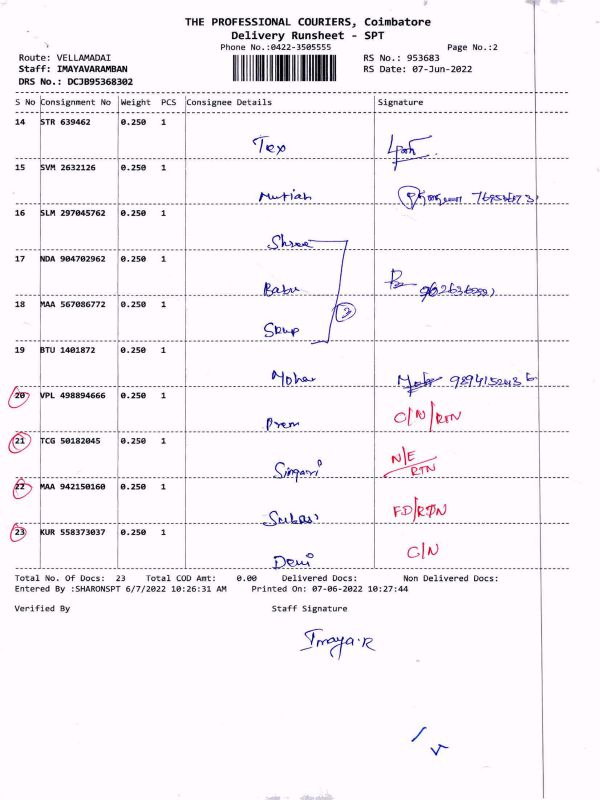 THE PROFESSIONAL COURIERS, Coimbatore
Delivery Runsheet - SPT
Phone No.:0422-3505555 Page No.:2
Route: VELLAMADAI RS No.: 953683
Staff: IMAYAVARAMBAN RS Date: 07-Jun-2022
DRS No.: DCJB95368302
S No Consignment No Weight PCS Consignee Details Signature
14 STR 639462 0.250 1
Tex
15 SVM 2632126 0.250 1
Mutiah
16 SLM 297045762 0.250 1
Shree
17 NDA 904702962 0.250 1
Babu
18 MAA 567086772 0.250 1
3
19 BTU 1401872 0.250 1
Mohan 9894152436
20 VPL 498894666 0.250 1 C/N/RTN
Prem
21 TCG 50182045 0.250 1 N/E
RTN
Singari
22 MAA 942150160 0.250 1
FD/RTN
Subasi
23 KUR 558373037 0.250 1
C/N
Devi
Total No. Of Docs: 23 Total COD Amt: 0.00 Delivered Docs: Non Delivered Docs:
Entered By :SHARONSPT 6/7/2022 10:26:31 AM Printed On: 07-06-2022 10:27:44
Verified By Staff Signature
Imaya.R